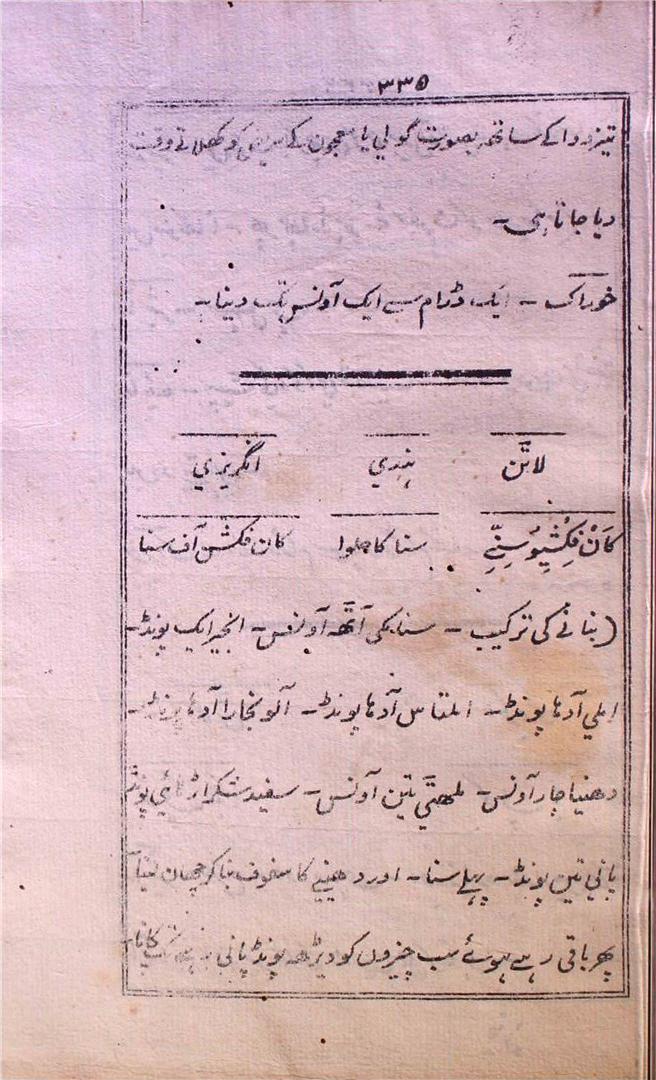 ۳۳۵
تیز دوا کے ساتھ بصورت گولي یا معجون کے مریض کو کھلاتے وقت
دیا جاتا ہی۔
خوراک ۔ ایک ڈرام سے ایک آونس تک دینا۔
لاٹن ہندي انگریزي
کَانْ فِکْشِیُوسِنِّے سنا کا حلوا کان فکشن آف سنا
(بنانے کی ترکیب ۔ سنا مکی آٹھ آونس۔ انجیر ایک پونڈ۔
املي آدھا پونڈ۔ املتاس آدھا پونڈ۔ آلو بخارا آدھا پونڈ۔
دھنیا چار آونس۔ ملھٹي تین آونس۔ سفید شکر اڑھائي پونڈ
پاني تین پونڈ۔ پہلے سنا۔ اور دھنیے کا سفوف بنا کر چھان لینا
پھر باقی رہے ہوئے سب چیزوں کو دیڑھ پونڈ پانی تک پکانا۔